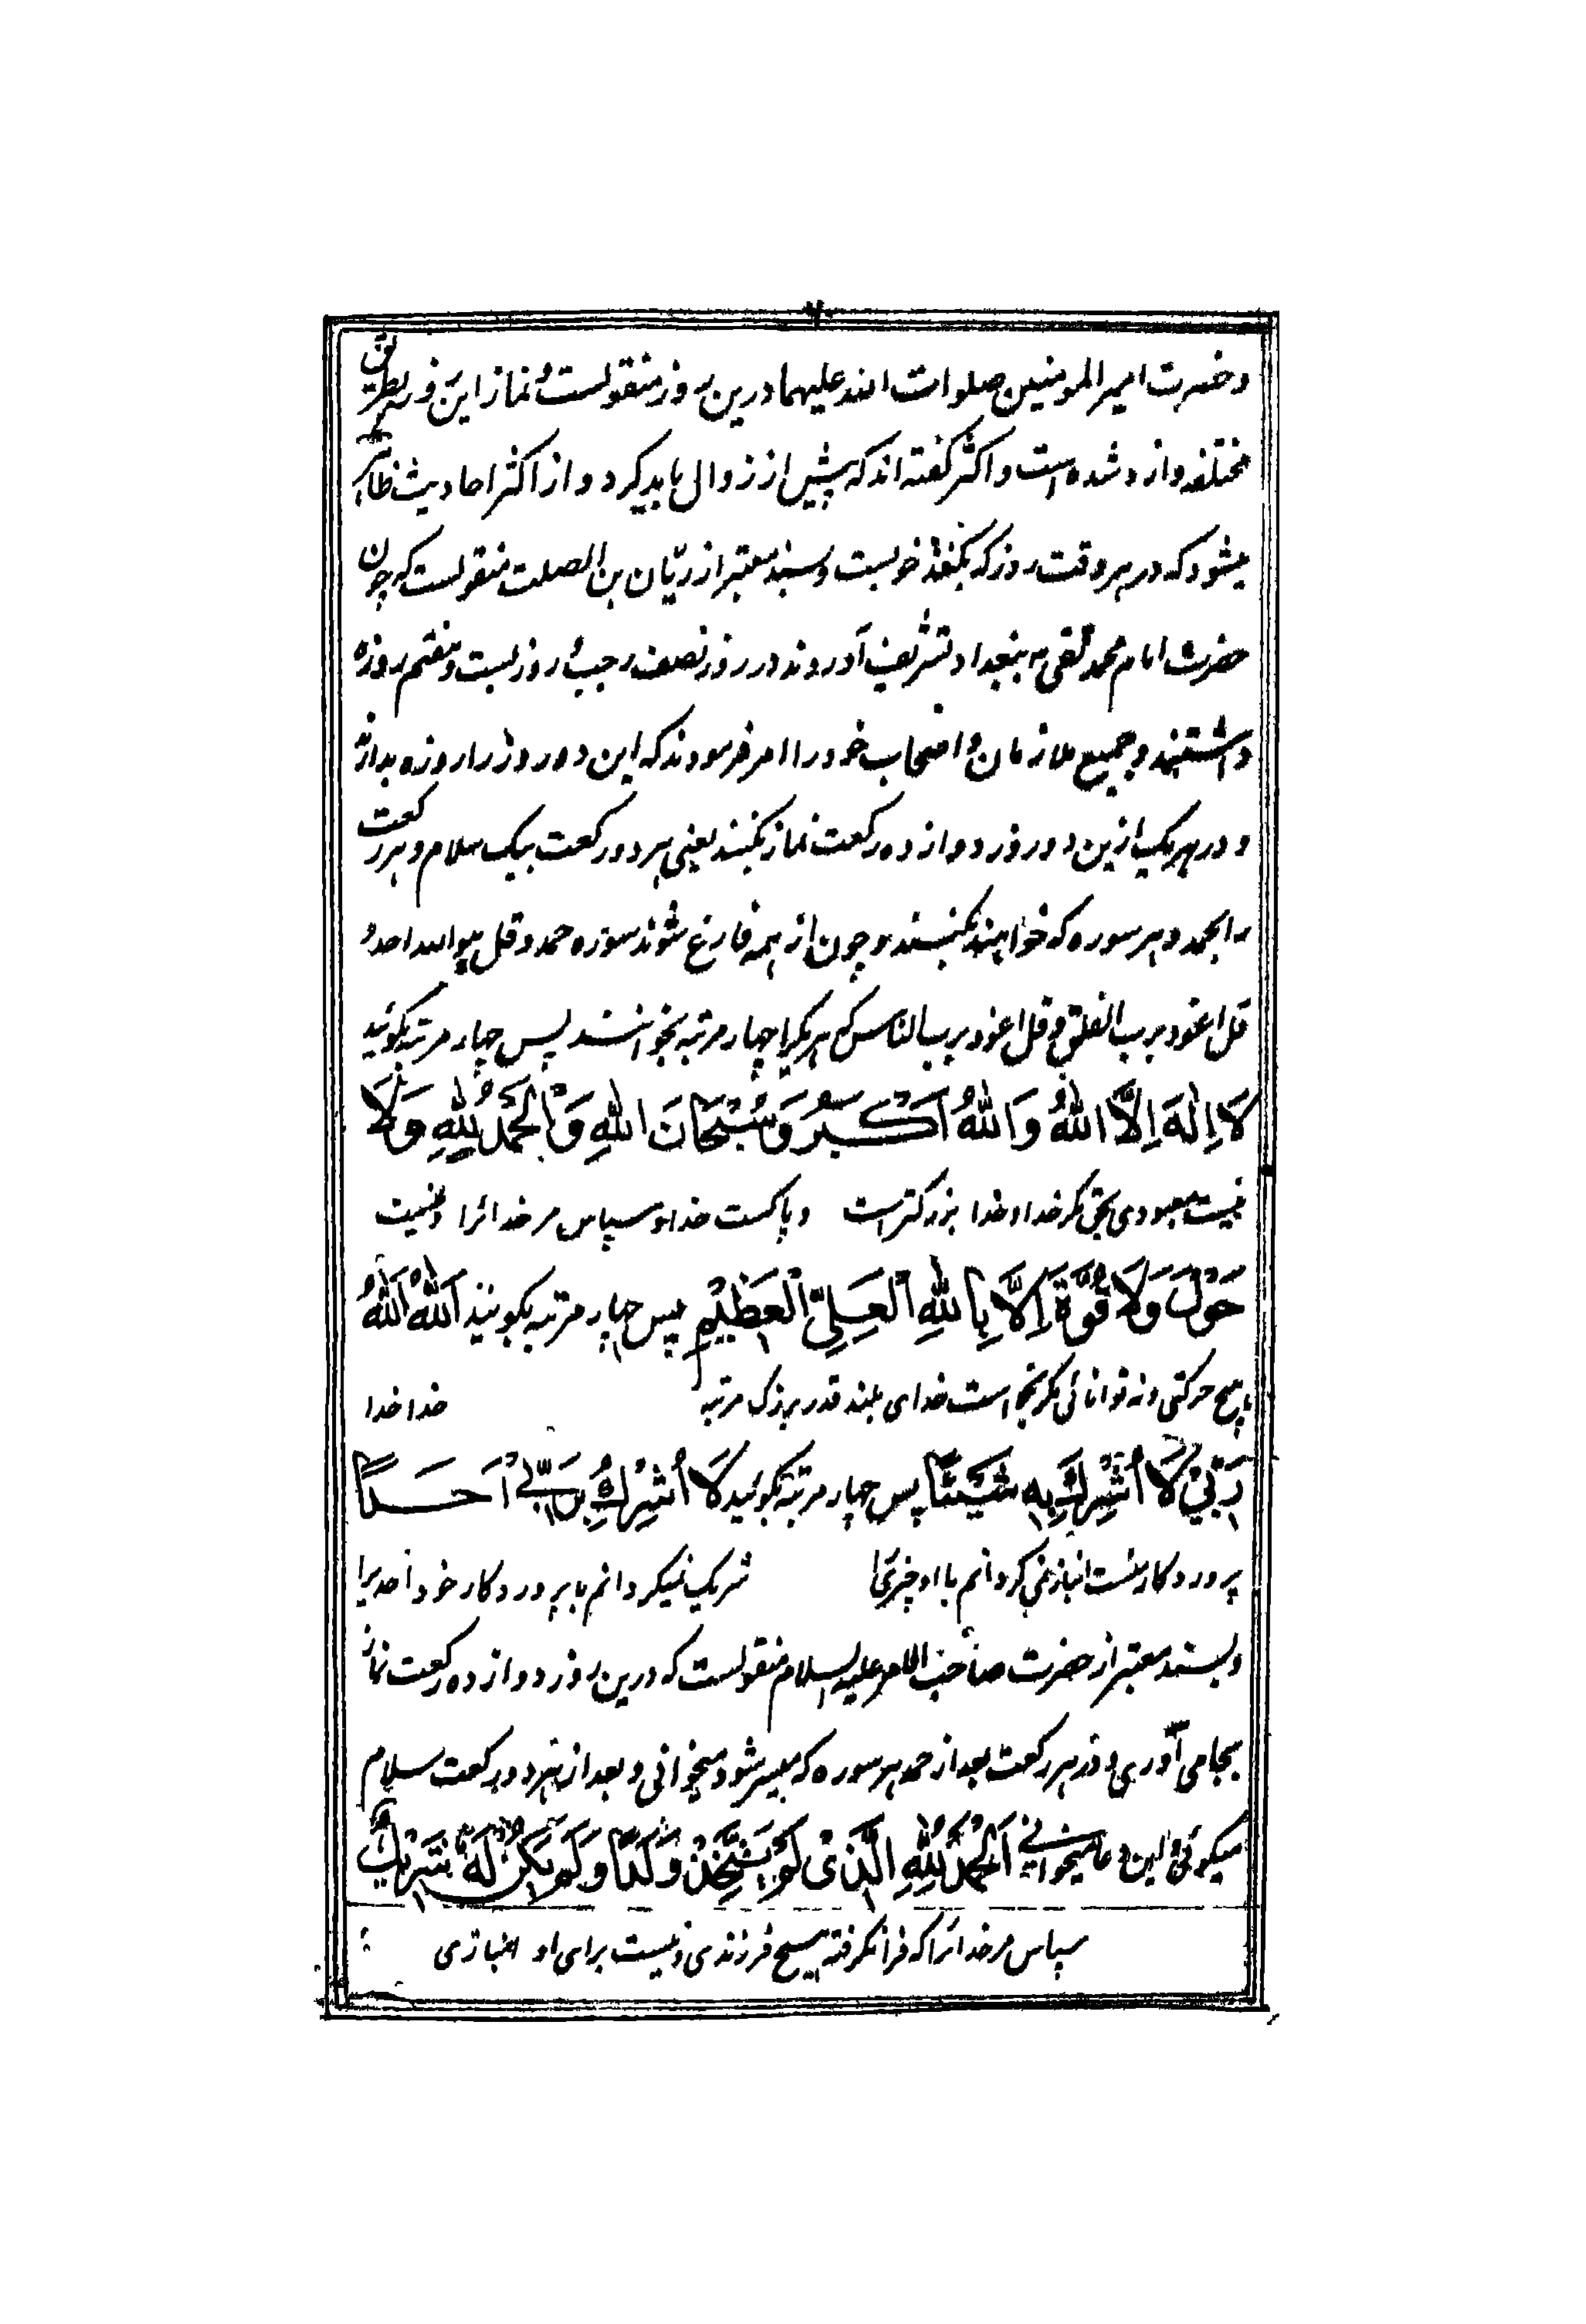 و حضرت امیر المومنین صلوات الله علیهما درین روز منقولست و نماز این روز بطریق
مختلفه وارد شده است و اکثر گفته اند که پیش از زوال باید کرد و از اکثر احادیث ظاهر
میشود که در هر وقت روز که بکنند خوبست و بسند معتبر از ریّان بن الصلت منقولست که چون
حضرت امام محمد تقی به بغداد تشریف آوردند در روز نصف رجب و روز بست و هفتم روزه
داشتند و جمیع ملازمان و اصحاب خود را امر فرمودند که این دو روز را روزه بدارند
و در هر یک ازین دو روز دوازده رکعت نماز بکنند یعنی هر دو رکعت بیک سلام و هر رکعت
را بحمد و هر سوره که خواهند بکنند و چون از همه فارغ شوند سوره حمد و قل هو الله احد و
قل اعوذ برب الفلق و قل اعوذ برب الناس که هر یکرا چهار مرتبه بخوانند پس چهار مرتبه بگویند
لَا اِلٰهَ اِلَّا اللهُ وَ اللهُ اَکْبَرُ وَ سُبْحَانَ اللهِ وَ الْحَمْدُ لِلّٰهِ وَ لَا
نیست معبودی بحق مگر خدا و خدا بزرگتر است و پاکست خدا و سپاس مر خدائرا و نیست
حَوْلَ وَلَا قُوَّةَ اِلَّا بِاللهِ الْعَلِیِّ الْعَظِیْمِ پس چهار مرتبه بگویند اَللهُ اَللهُ
هیچ حرکتی و نه توانائی مگر بخواست خدای بلند قدر بزرگ مرتبه خدا خدا
رَبِّیْ لَا اُشْرِكُ بِهٖ شَیْئًا پس چهار مرتبه بگویند لَا اُشْرِكُ بِرَبِّیْ اَحَدًا
پروردگار منست انباز نمی گردانم با او چیزیرا شریک نمیگردانم با پروردگار خود احدیرا
و بسند معتبر از حضرت صاحب الامر علیه السلام منقولست که درین روز دوازده رکعت نماز
بجا می آوری و در هر رکعت بعد از حمد هر سوره که میسر شود میخوانی و بعد از هر دو رکعت سلام
میگوئی و این دعا میخوانی اَلْحَمْدُ لِلّٰهِ الَّذِیْ لَمْ یَتَّخِذْ وَلَدًا وَ لَمْ یَکُنْ لَهٗ شَرِیْكٌ
سپاس مر خدائرا که فرا نگرفته هیچ فرزندی و نیست برای او انبازی